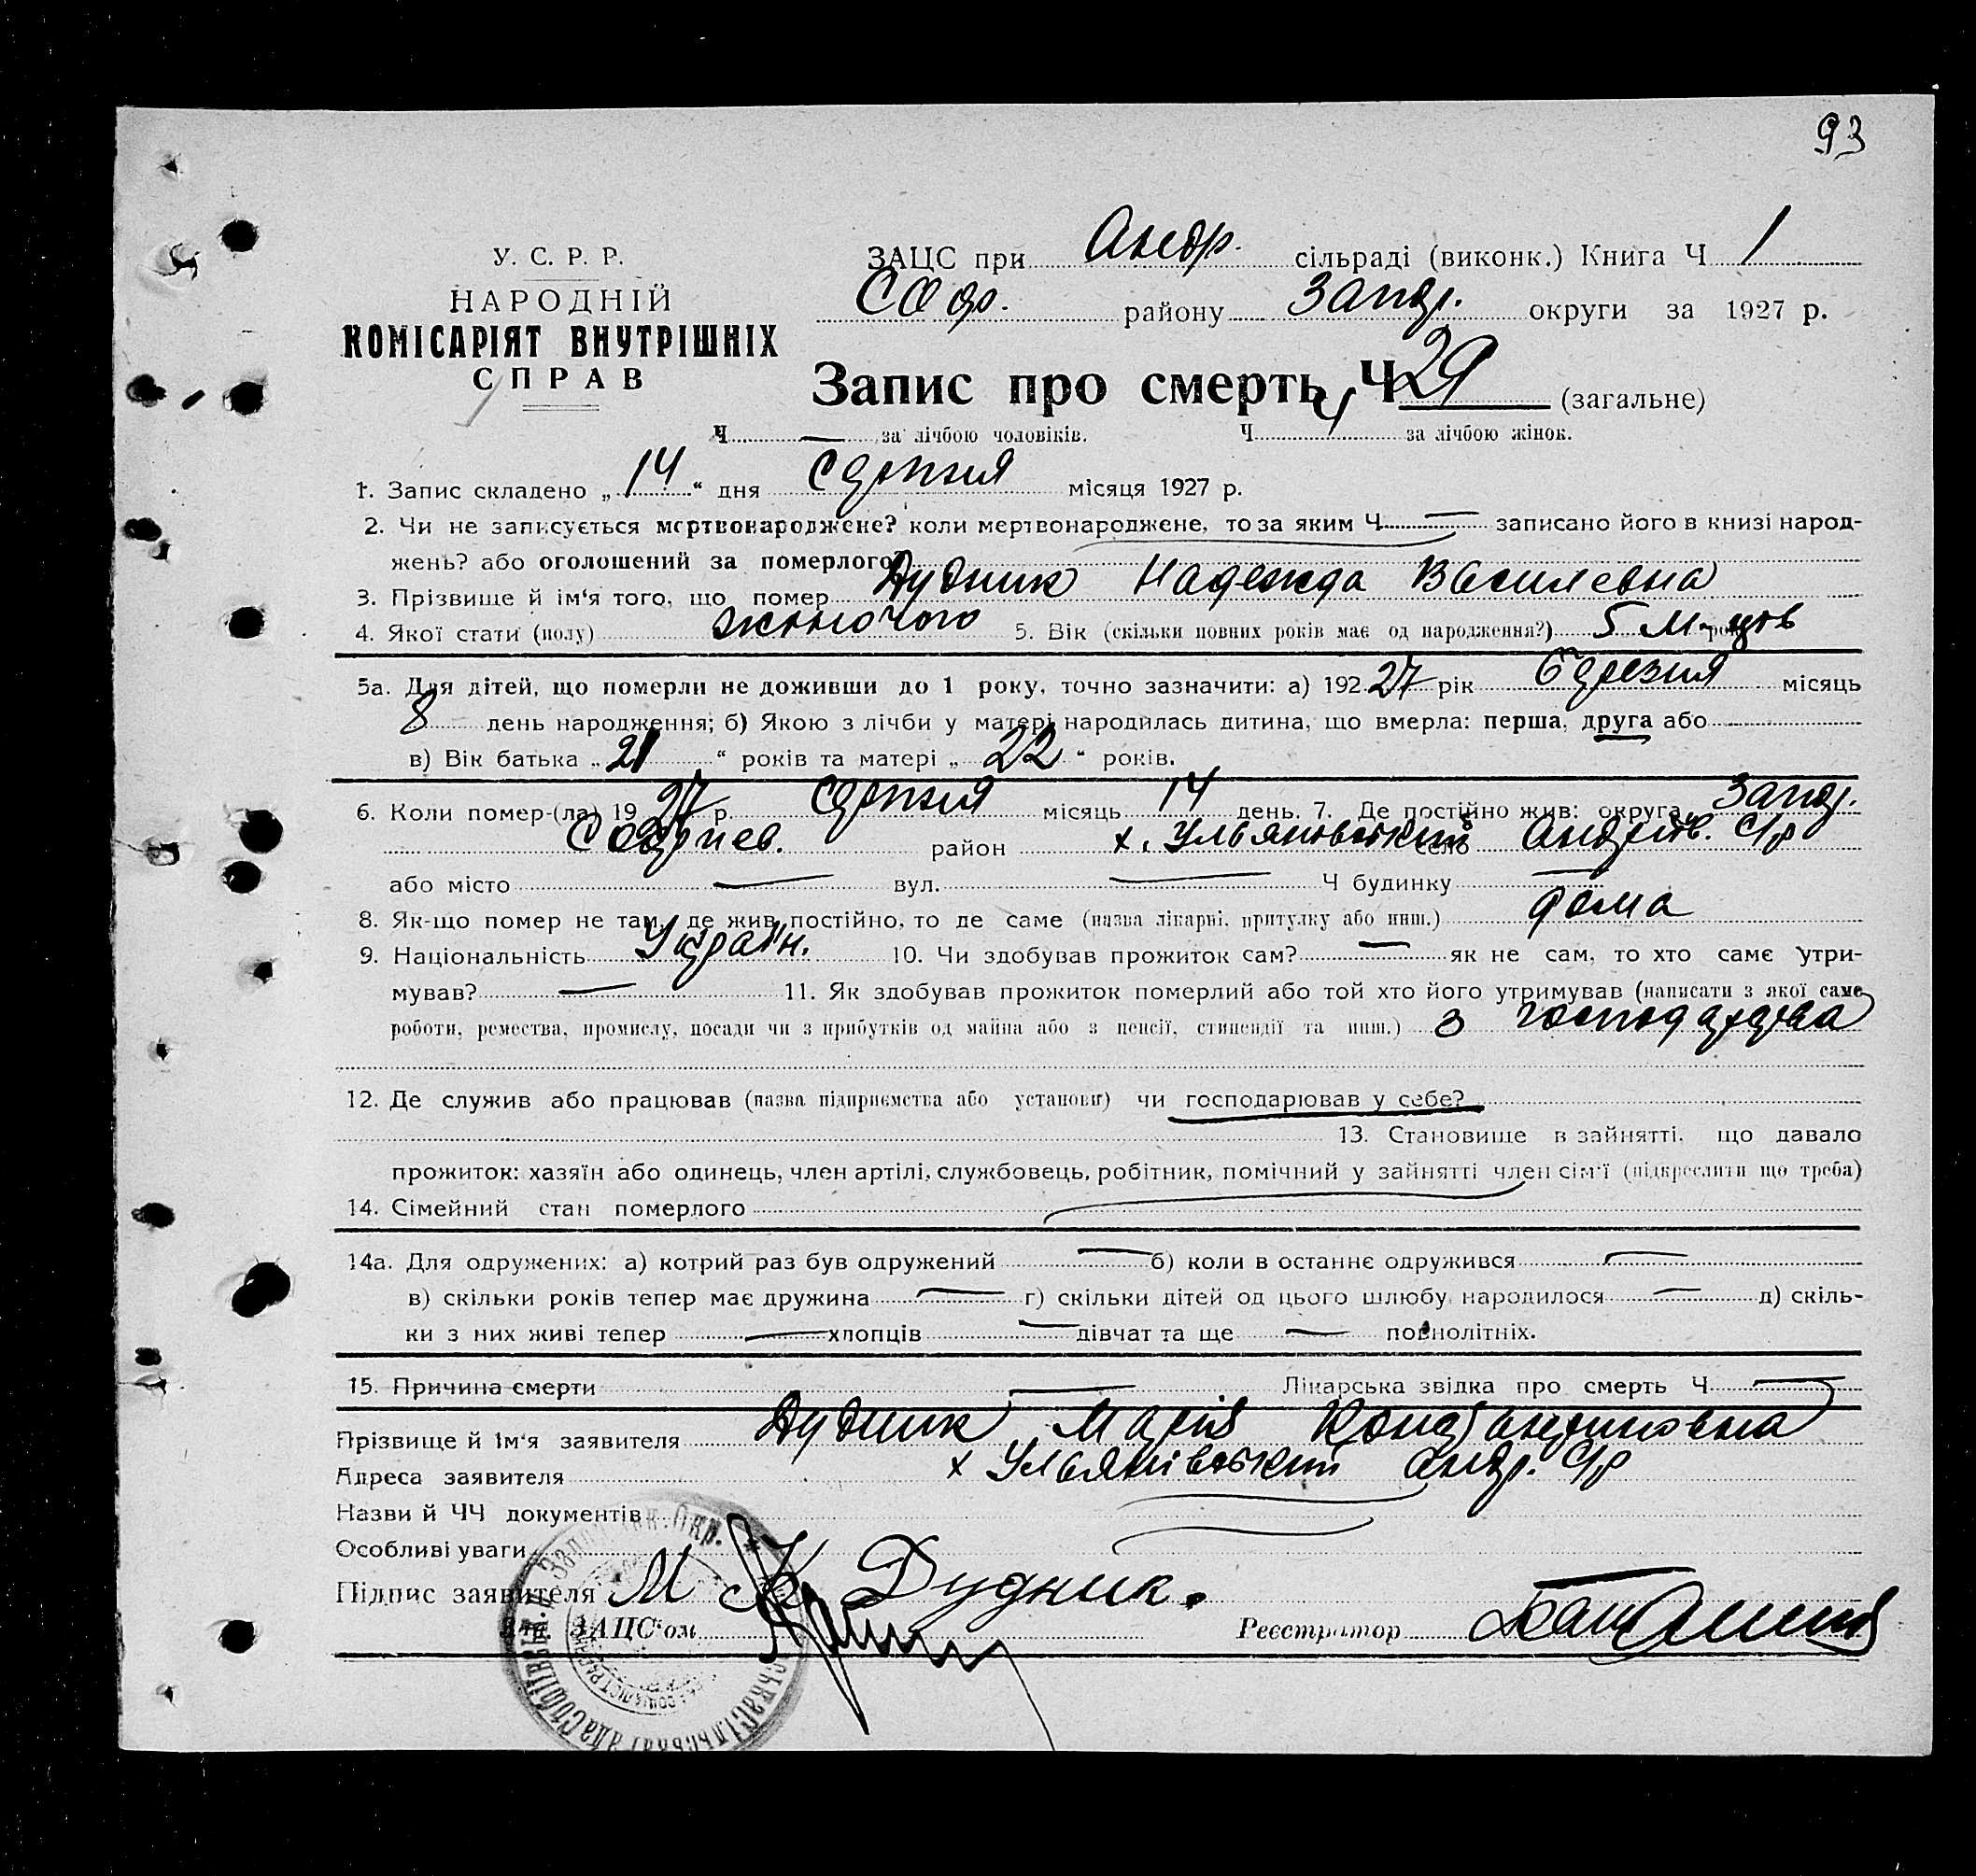 93
У. С. Р. Р.
НАРОДНІЙ
КОМІСАРІЯТ ВНУТРІШНІХ
СПРАВ
ЗАЦС при Андр. сільраді (виконк.) Книга Ч 1
Соф. району Запор. округи за 1927 р.
Запис про смерть Ч 29 (загальне)
Ч — за лічбою чоловіків. Ч 4 за лічбою жінок.
1. Запис складено „14“ дня Серпня місяця 1927 р.
2. Чи не записується мертвонароджене? коли мертвонароджене, то за яким Ч — записано його в книзі народ-
жень? або оголошений за померлого?
3. Прізвище й ім'я того, що помер Дудник Надежда Василевна
4. Якої стати (полу) жиночого 5. Вік (скільки повних років має од народження?) 5 м-цев
5а. Для дітей, що померли не доживши до 1 року, точно зазначити: а) 192 27 рік березня місяць
8 день народження; б) Якою з лічби у матері народилась дитина, що вмерла: перша, друга або
в) Вік батька „21“ років та матері „22“ років.
6. Коли помер-(ла) 19 27 р. Серпня місяць 14 день. 7. Де постійно жив: округа Запор.
Софиев. район х. Ульяновський село Андрів. С/р
або місто — вул. — Ч будинку —
8. Як-що помер не там, де жив постійно, то де саме (назва лікарні, притулку або инш.) дома
9. Національність Україн. 10. Чи здобував прожиток сам? — як не сам, то хто саме утри-
мував? — 11. Як здобував прожиток померлий або той хто його утримував (написати з якої саме
роботи, ремества, промислу, посади чи з прибутків од майна або з пенсії, стипендії та инш.) З господарства
12. Де служив або працював (назва підприємства або установи) чи господарював у себе?
13. Становище в зайнятті, що давало
прожиток: хазяїн або одинець, член артілі, службовець, робітник, помічний у зайнятті член сім'ї (підкреслити що треба)
14. Сімейний стан померлого
14а. Для одружених: а) котрий раз був одружений — б) коли в останнє одружився —
в) скільки років тепер має дружина — г) скільки дітей од цього шлюбу народилося — д) скіль-
ки з них живі тепер — хлопців — дівчат та ще — повнолітніх.
15. Причина смерти — Лікарська звідка про смерть Ч —
Прізвище й ім'я заявителя Дудник Марія Константиновна
Адреса заявителя х Ульянівський Андр. С/р
Назви й ЧЧ документів
Особливі уваги
Підпис заявителя М К Дудник.
ЗАЦС'ом Реєстратор